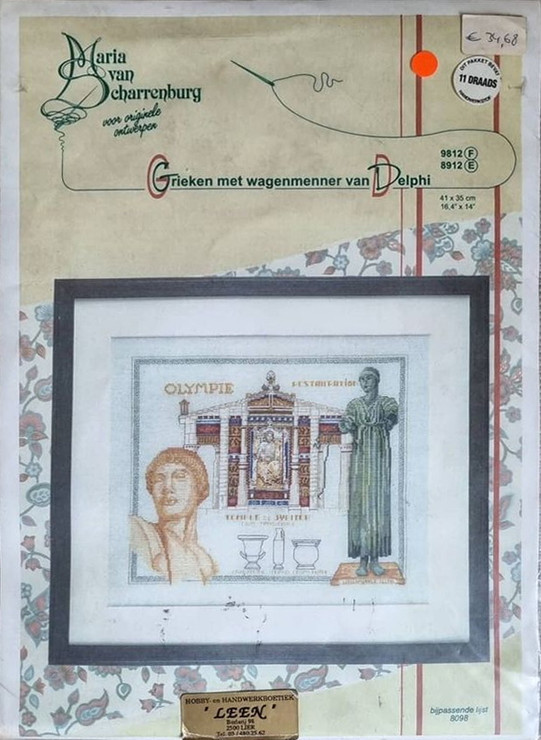 € 34,68
Maria
van
Scharrenburg
voor originele
ontwerpen
DIT PAKKET BEVAT
11 DRAADS
HANDWERKSTOF
9812 F
8912 E
Grieken met wagenmenner van Delphi
41 x 35 cm
16,4" x 14"
OLYMPIE
RESTAURATION
TEMPLE DE JUPITER
HOBBY- en HANDWERKBOETIEK
"LEEN"
2500 LIER
Tel. 03 / 480 25 62
bijpassende lijst
8098